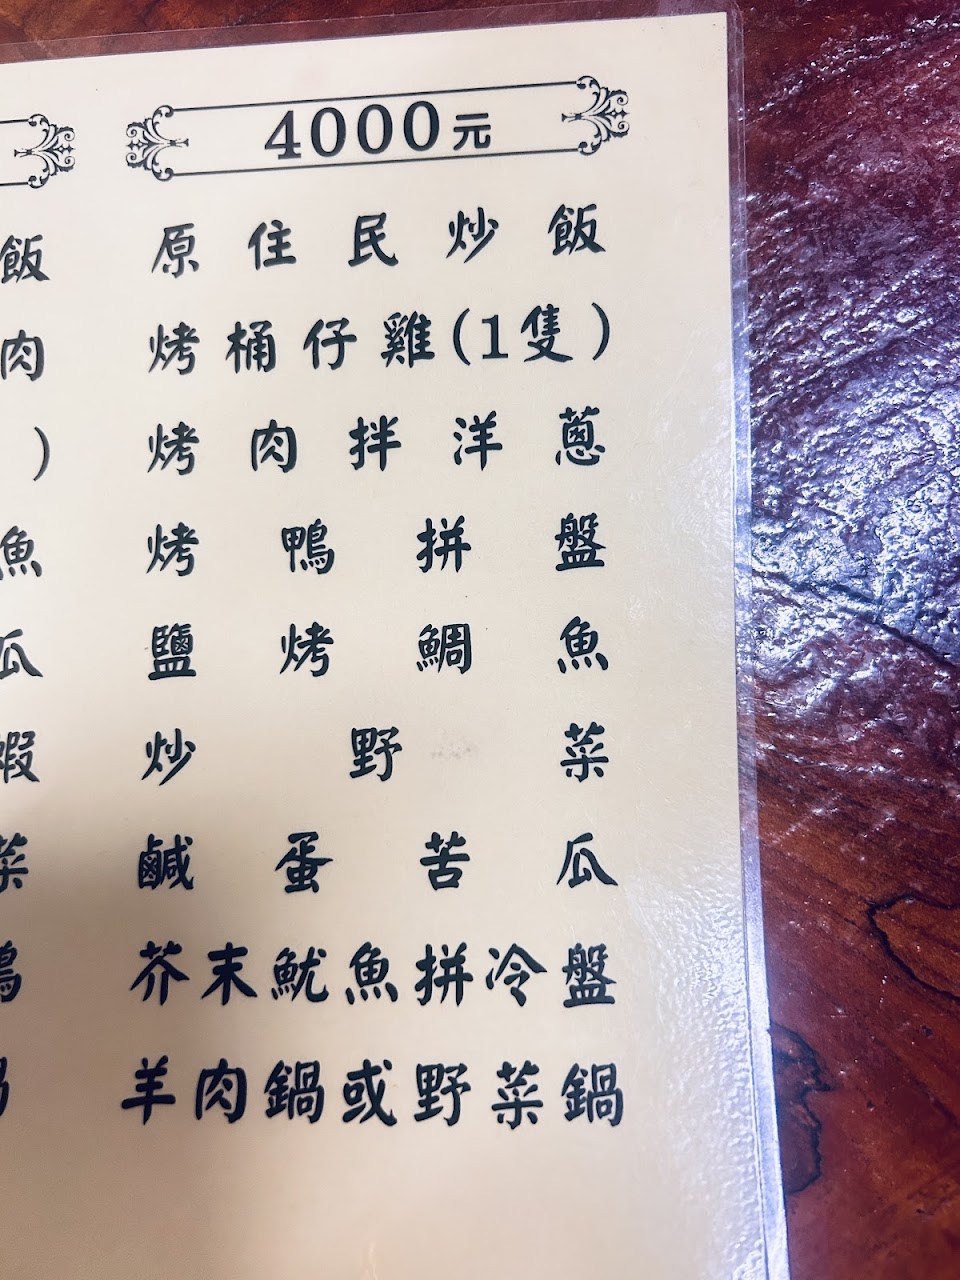 4000元
飯 原住民炒飯
肉 烤桶仔雞(1隻)
) 烤肉拌洋蔥
魚 烤鴨拼盤
瓜 鹽烤鯛魚
蝦 炒野菜
菜 鹹蛋苦瓜
芥末魷魚拼冷盤
羊肉鍋或野菜鍋